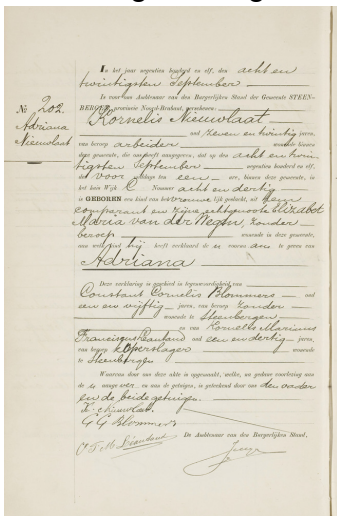 No 202.
Adriana
Nieuwlaat
In het jaar negentien honderd en elf, den acht en
twintigsten September
is voor ons Ambtenaar van den Burgerlijken Stand der Gemeente STEEN-
BERGEN, provincie Noord-Brabant, verschenen:
Kornelis Nieuwlaat
oud zeven en twintig jaren,
van beroep arbeider wonende binnen
deze gemeente, die ons heeft aangegeven, dat op den acht en twin-
tigsten September negentien honderd en elf,
des voor middags ten een ure, binnen deze gemeente, in
het huis Wijk C Nummer acht en dertig
is GEBOREN een kind van het vrouwelijk geslacht, uit hem
comparant en zijne echtgenoote Elizabet
Maria van der Wegen, zonder
beroep wonende in deze gemeente,
aan welk kind hij heeft verklaard de voornaam te geven van
Adriana
Deze verklaring is geschied in tegenwoordigheid van
Constant Cornelis Blommers oud
een en vijftig jaren, van beroep zonder
wonende te Steenbergen
en van Kornelis Marinus
Franciscus oud een en dertig jaren,
van beroep koperslager wonende
te Steenbergen
Waarvan door ons deze akte is opgemaakt, welke, na gedane voorlezing aan
de aangever en aan de getuigen, is geteekend door ons den vader
en de beide getuigen.
K. Nieuwlaat.
C C Blommers
De Ambtenaar van den Burgerlijken Stand,